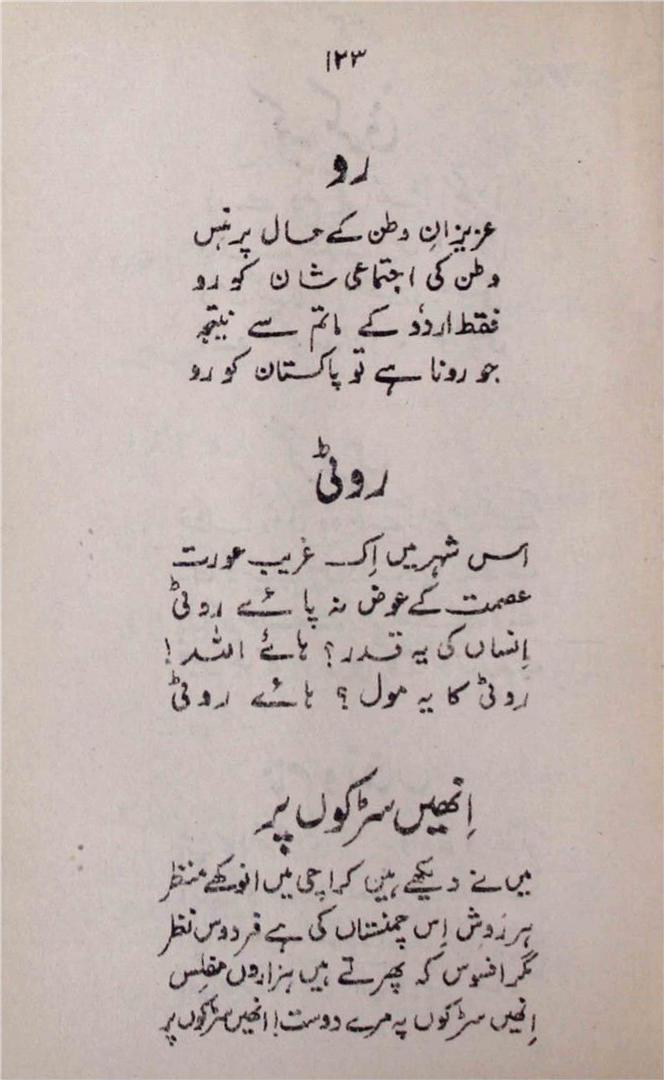 ۱۲۳
رو
عزیزانِ وطن کے حال پر ہنس
وطن کی اجتماعی شان کو رو
فقط اردُو کے ماتم سے نتیجہ
جو رونا ہے تو پاکستان کو رو
روٹی
اس شہر میں اِک غریب عورت
عصمت کے عوض نہ پائے روٹی
اِنساں کی یہ قدر؟ ہائے اللہ!
روٹی کا یہ مول؟ ہائے روٹی
اِنھیں سڑکوں پر
میں نے دیکھے ہیں کراچی میں انوکھے منظر
ہر رَوِش اِس چمنستاں کی ہے فردوس نظر
مگر افسوس کہ پھرتے ہیں ہزاروں مفلِس
اِنھیں سڑکوں پہ مرے دوست! انھیں سڑکوں پر